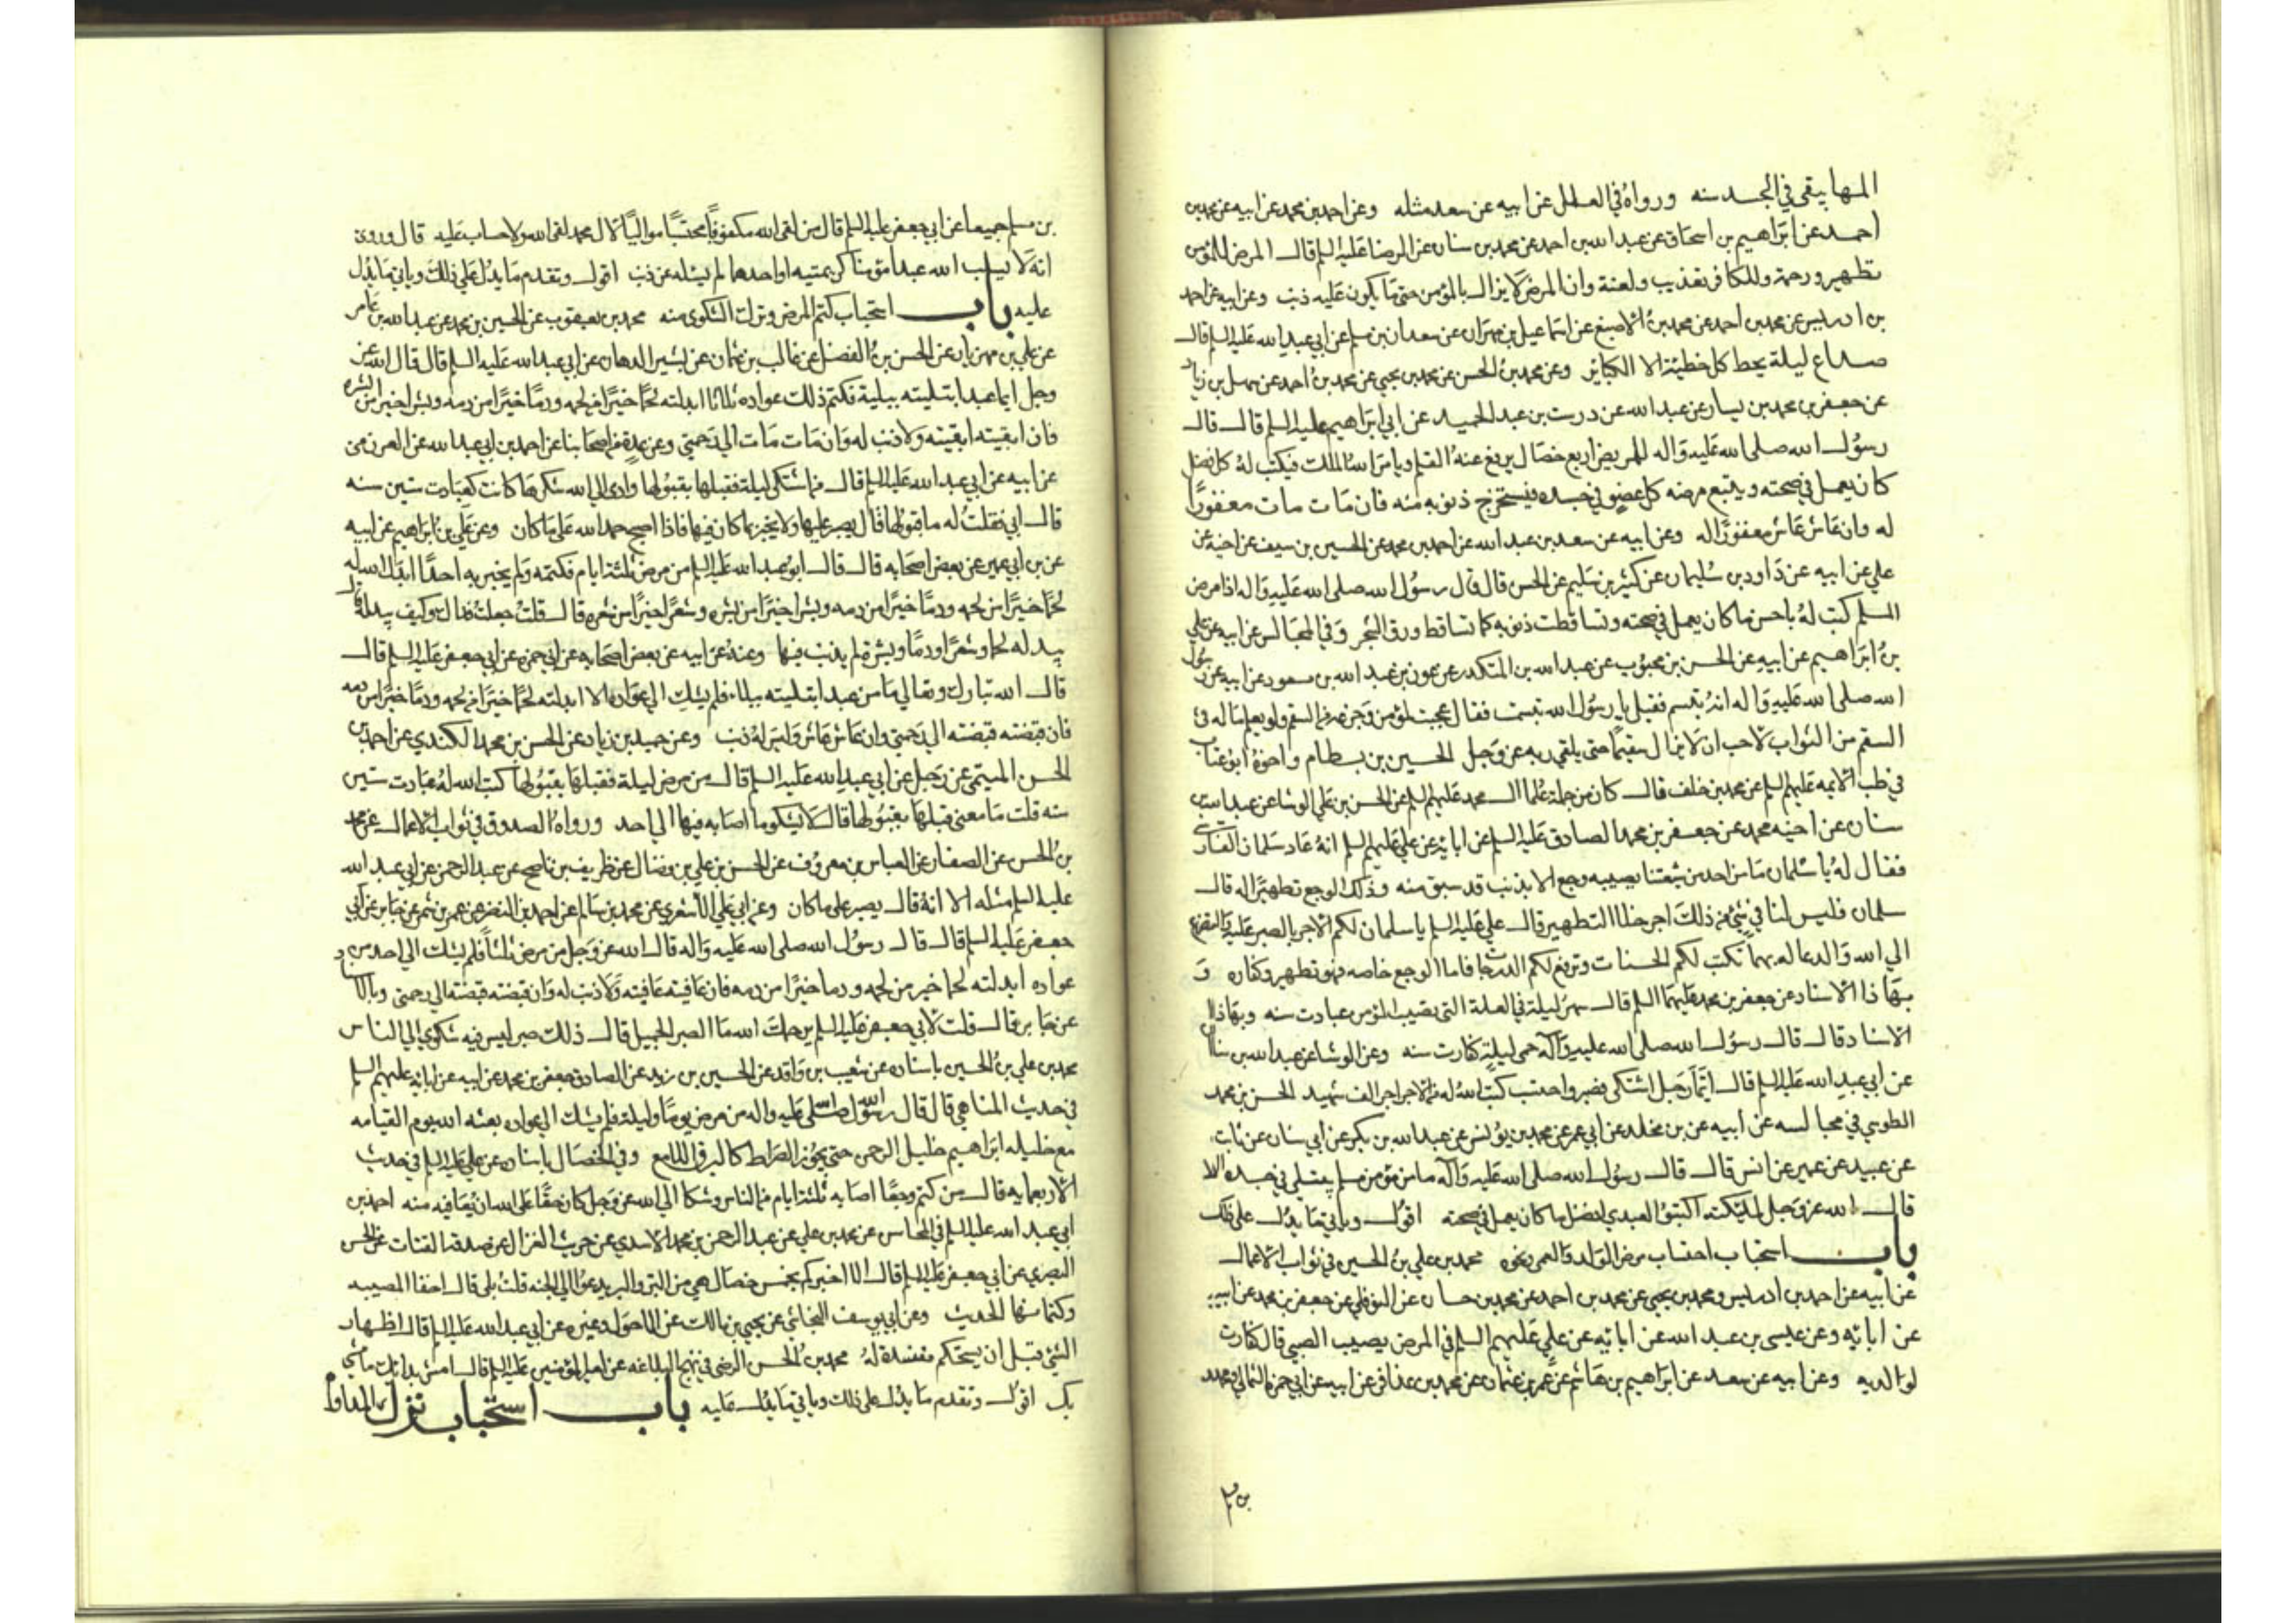 المها يبقى في الجسد سنه ورواه في العلل عن ابيه عن سعد مثله وعن احمد بن محمد عن ابيه عن محمد بن
احمد عن ابراهيم بن اسحاق عن عبد الله بن احمد عن محمد بن سنان عن الرضا عليه السلم قال المرض للمؤمن
تطهير ورحمة وللكافر تعذيب ولعنة وان المرض لا يزال بالمؤمن حتى ما يكون عليه ذنب وعن ابيه عن احمد
بن ادريس عن محمد بن احمد عن محمد بن الاصبغ عن اسماعيل بن مهران عن سعدان بن مسلم عن ابي عبد الله عليه السلم قال
صداع ليلة يحط كل خطيئة الا الكبائر وعن محمد بن الحسن عن محمد بن يحيى عن محمد بن احمد عن سهل بن زياد
عن جعفر بن محمد بن يسار عن عبد الله عن درست بن عبد الحميد عن ابي ابراهيم عليه السلم قال قال
رسول الله صلى الله عليه واله للمريض اربع خصال يرفع عنه القلم ويامر الله الملك فيكتب له كل فضل
كان يعمل في صحته ويتبع مرضه كل عضو في جسده فيستخرج ذنوبه منه فان مات مات مغفورا
له وان عاش عاش مغفورا له وعن ابيه عن سعد بن عبد الله عن احمد بن محمد عن الحسين بن سيف عن اخيه عن
علي عن ابيه عن داود بن سليمان عن كثير بن سليم عن الحسن قال قال رسول الله صلى الله عليه واله اذا مرض
المسلم كتب له باحسن ما كان يعمل في صحته وتساقطت ذنوبه كما تساقط ورق الشجر وفي المجالس عن ابيه عن علي
بن ابراهيم عن ابيه عن الحسن بن محبوب عن عبد الله بن المنكدر عن عون بن عبد الله بن مسعود عن ابيه عن رسول
الله صلى الله عليه واله انه تبسم فقيل يا رسول الله تبسمت فقال عجبت لمؤمن وجزعه من السقم ولو يعلم ما له في
السقم من الثواب لاحب ان لا يزال سقيما حتى يلقى ربه عز وجل الحسين بن بسطام واخوه ابو عتاب
في طب الائمه عليهم السلم عن محمد بن خلف قال كان من جملة علما ال محمد عليهم السلم عن الحسن بن علي الوشا عن عبد الله بن
سنان عن اخيه محمد عن جعفر بن محمد الصادق عليه السلم عن ابايه عن علي عليهم السلم انه عاد سلمان الفارسي
فقال له يا سلمان ما من احد من شيعتنا يصيبه وجع الا بذنب قد سبق منه وذلك الوجع تطهير له قال
سلمان فليس لنا في شئ من ذلك اجر خلا التطهير قال علي عليه السلم يا سلمان لكم الاجر بالصبر عليه والتضرع
الى الله والدعا له بهما تكتب لكم الحسنات وترفع لكم الدرجات فاما الوجع خاصه فهو تطهير وكفاره و
بهاذا الاسناد عن جعفر بن محمد عليهما السلم قال سهر ليلة في العلة التي تصيب المؤمن عبادت سنه وبهاذا
الاسناد قال قال رسول الله صلى الله عليه واله حمى ليلة كفارت سنه وعن الوشا عن عبد الله بن سنان
عن ابي عبد الله عليه السلم قال ايما رجل اشتكى فصبر واحتسب كتب الله له من الاجر اجر الف شهيد الحسن بن محمد
الطوسي في مجالسه عن ابيه عن بن مخلد عن ابي عمر عن محمد بن يونس عن عبد الله بن بكر عن ابي سنان عن ثابت
عن عبيد عن عمير عن انس قال قال رسول الله صلى الله عليه واله ما من مؤمن مسلم يبتلى في جسده الا
قال الله عز وجل لملئكته اكتبوا لعبدي افضل ما كان يعمل في صحته اقول وياتي ما يدل على ذلك
باب استحباب احتساب مرض الولد والعمى ونحوه محمد بن علي بن الحسين في ثواب الاعمال
عن ابيه عن احمد بن ادريس ومحمد بن يحيى عن محمد بن احمد عن محمد بن حسان عن النوفلي عن جعفر بن محمد عن ابيه
عن ابايه وعن عيسى بن عبد الله عن ابايه عن علي عليهم السلم في المرض يصيب الصبي قال كفارت
لوالديه وعن ابيه عن سعد عن ابراهيم بن هاشم عن عمر بن عثمان عن محمد بن عذافر عن ابيه عن ابي حمزة الثمالي ومحمد
بن م
بن مسلم جميعا عن ابي جعفر عليه السلم قال من لقى الله مكفوفا محتسبا مواليا لال محمد لقى الله ولا حساب عليه قال وروى
انه لا يسلب الله عبدا مؤمنا كريمتيه او احدهما ثم يسئله عن ذنب اقول وتقدم ما يدل على ذلك وياتي ما يدل
عليه باب استحباب كتم المرض وترك الشكوى منه محمد بن يعقوب عن الحسين بن محمد عن عبد الله بن عامر
عن علي بن مهزيار عن الحسن بن الفضل عن غالب بن عثمان عن بشير الدهان عن ابي عبد الله عليه السلم قال قال الله عز
وجل ايما عبد ابتليته ببلية فكتم ذلك عواده ثلاثا ابدلته لحما خيرا من لحمه ودما خيرا من دمه وبشرا خيرا من بشره
فان ابقيته ابقيته ولا ذنب له وان مات مات الى رحمتي وعن عدة من اصحابنا عن احمد بن ابي عبد الله عن العرزمي
عن ابيه عن ابي عبد الله عليه السلم قال من اشتكى ليلة فقبلها بقبولها وادى الى الله شكرها كانت كعبادت ستين سنه
قال ابي فقلت له ما قبولها قال يصبر عليها ولا يخبر بما كان فيها فاذا اصبح حمد الله على ما كان وعن علي بن ابراهيم عن ابيه
عن بن ابي عمير عن بعض اصحابه قال قال ابو عبد الله عليه السلم من مرض ثلثة ايام فكتمه ولم يخبر به احدا ابدل الله له
لحما خيرا من لحمه ودما خيرا من دمه وبشرا خيرا من بشره وشعرا خيرا من شعره قال قلت جعلت فداك وكيف يبدله قال
يبدله لحما وشعرا ودما وبشرة لم يذنب فيها وعنه عن ابيه عن بعض اصحابه عن ابي حمزه عن ابي جعفر عليه السلم قال
قال الله تبارك وتعالى ما من عبد ابتليته ببلاء فلم يشك الى عواده الا ابدلته لحما خيرا من لحمه ودما خيرا من دمه
فان قبضته قبضته الى رحمتي وان عاش عاش وليس له ذنب وعن حميد بن زياد عن الحسن بن محمد الكندي عن احمد بن
الحسن الميثمي عن رجل عن ابي عبد الله عليه السلم قال من مرض ليلة فقبلها بقبولها كتب الله له عبادت ستين
سنه قلت ما معنى قبلها بقبولها قال لا يشكو ما اصابه فيها الى احد ورواه الصدوق في ثواب الاعمال عن محمد
بن الحسن عن الصفار عن العباس بن معروف عن الحسن بن علي بن فضال عن ظريف بن ناصح عن عبد الرحمن عن ابي عبد الله
عليه السلم مثله الا انه قال يصبر على ما كان وعن ابي علي الاشعري عن محمد بن سالم عن احمد بن النضر عن عمر بن شمر عن جابر عن ابي
جعفر عليه السلم قال قال رسول الله صلى الله عليه واله قال الله عز وجل من مرض ثلثا فلم يشك الى احد من
عواده ابدلته لحما خير من لحمه ودما خيرا من دمه فان عافيته عافيته ولا ذنب له وان قبضته قبضته الى رحمتي وبالاسناد
عن جابر قال قلت لابي جعفر عليه السلم يرحمك الله ما الصبر الجميل قال ذلك صبر ليس فيه شكوى الى الناس
محمد بن علي بن الحسين باسناده عن شعيب بن واقد عن الحسين بن زيد عن الصادق جعفر بن محمد عن ابيه عن ابايه عليهم السلم
في حديث المناهي قال قال رسول الله صلى الله عليه واله من مرض يوما وليلة فلم يشك الى عواده بعثه الله يوم القيامه
مع خليله ابراهيم خليل الرحمن حتى يجوز الصراط كالبرق اللامع وفي الخصال باسناده عن علي عليه السلم في حديث
الاربعمايه قال من كتم وجعا اصابه ثلثة ايام من الناس وشكا الى الله عز وجل كان حقا على الله ان يعافيه منه احمد بن
ابي عبد الله عليه السلم في المحاسن عن محمد بن علي عن عبد الرحمن بن محمد الاسدي عن حريب الغزال عن صدقة القتات عن الحسن
البصري عن ابي جعفر عليه السلم قال الا اخبركم بخمس خصال هي من البر والبر يدعو الى الجنه قلت بلى قال اخفا المصيبه
وكتمانها الحديث وعن ابي يوسف النجاشي عن يحيى بن مالك عن الاحول وغيره عن ابي عبد الله عليه السلم قال اظهار
الشئ قبل ان يستحكم مفسدة له محمد بن الحسن الرضي في نهج البلاغه عن امير المؤمنين عليه السلم قال امش بدائك ما مشى
بك اقول وتقدم ما يدل على ذلك وياتي ما يدل عليه باب استحباب ترك المداواة